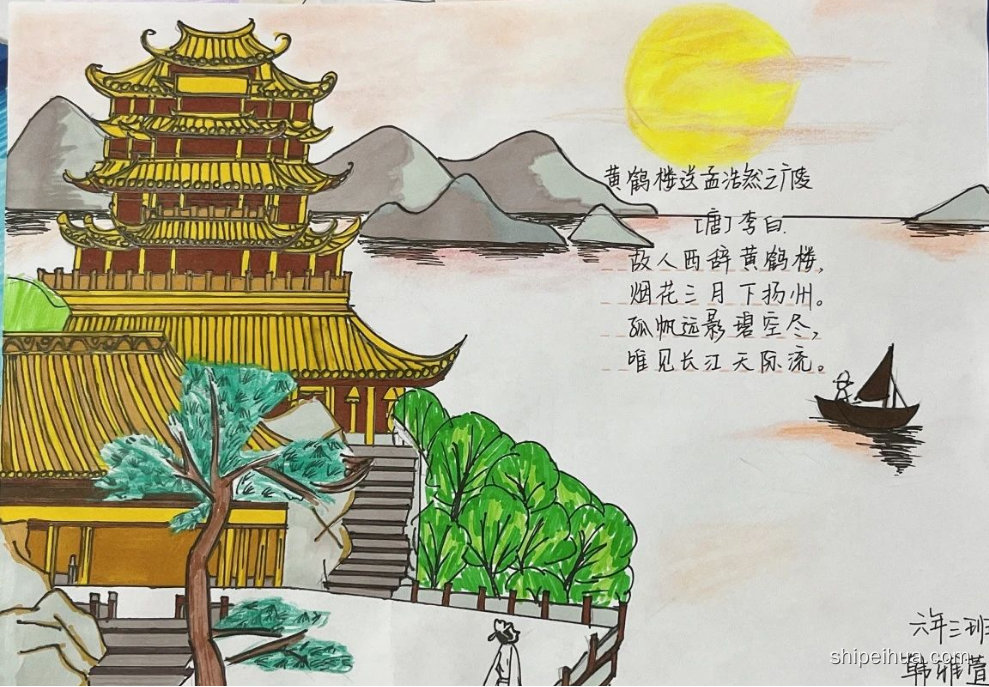 黄鹤楼送孟浩然之广陵
[唐]李白.
故人西辞黄鹤楼,
烟花三月下扬州。
孤帆远影碧空尽,
唯见长江天际流。
六年三班
shipeihua.com
韩雅萱